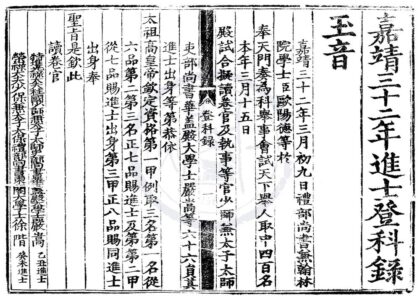 嘉靖三十二年進士登科錄
玉音
嘉靖三十二年三月初九日禮部尚書兼翰林
院學士臣歐陽德等於
奉天門奏為科舉事會試天下舉人取中四百名
本年三月十五日
殿試合擬讀卷官及執事等官少師兼太子太師
吏部尚書華蓋殿大學士嚴嵩等六十六員其
進士出身等第恭依
太祖高皇帝欽定資格第一甲例取三名第一名從
六品第二第三名正七品賜進士及第第二甲
從七品賜進士出身第三甲正八品賜同進士
出身奉
聖旨是欽此
讀卷官
嚴嵩 乙丑進士
徐階 癸未進士
登科錄